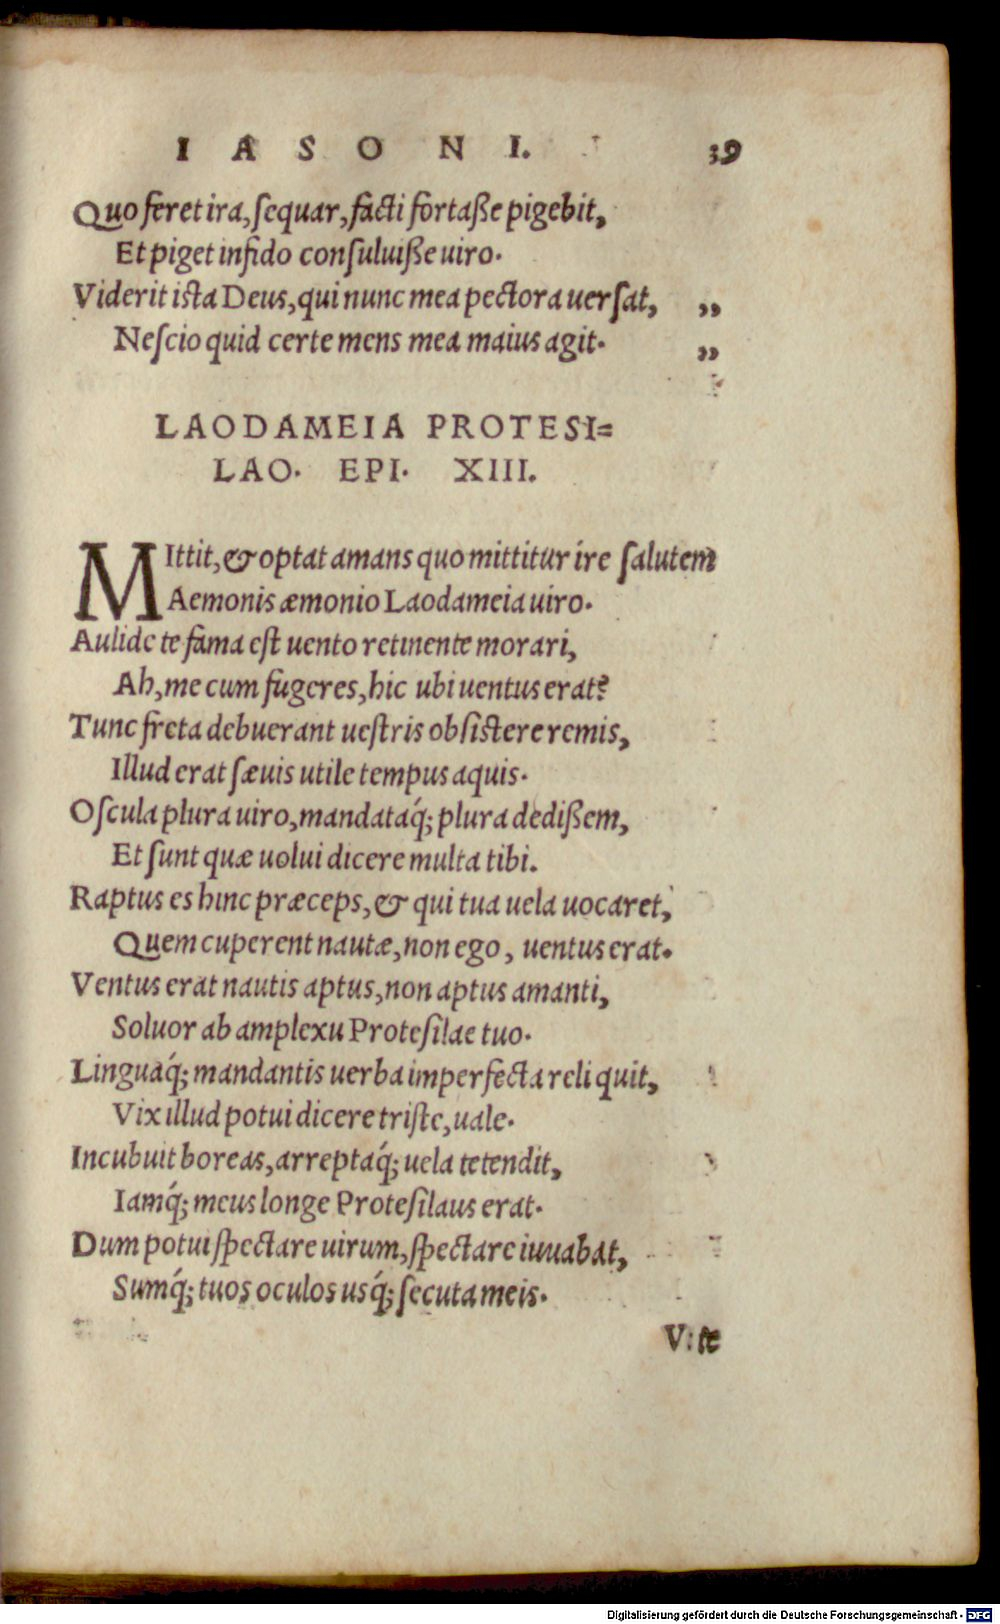 IASONI. 39
Quo feret ira, sequar, facti fortaße pigebit,
Et piget infido consuluiße uiro.
Viderit ista Deus, qui nunc mea pectora uersat, ,,
Nescio quid certe mens mea maius agit. ,,
LAODAMEIA PROTESI=
LAO. EPI. XIII.
MIttit, & optat amans quo mittitur ire salutem
Aemonis æmonio Laodameia uiro.
Aulide te fama est uento retinente morari,
Ah, me cum fugeres, hic ubi uentus erat?
Tunc freta debuerant uestris obsistere remis,
Illud erat sæuis utile tempus aquis.
Oscula plura uiro, mandataq́; plura dedißem,
Et sunt quæ uolui dicere multa tibi.
Raptus es hinc præceps, & qui tua uela uocaret,
Quem cuperent nautæ, non ego, uentus erat.
Ventus erat nautis aptus, non aptus amanti,
Soluor ab amplexu Protesilae tuo.
Linguaq́; mandantis uerba imperfecta reliquit,
Vix illud potui dicere triste, uale.
Incubuit boreas, arreptaq́; uela tetendit,
Iamq́; meus longe Protesilaus erat.
Dum potui spectare uirum, spectare iuuabat,
Sumq́; tuos oculos usq́; secuta meis.
V: te
Digitalisierung gefördert durch die Deutsche Forschungsgemeinschaft - DFG